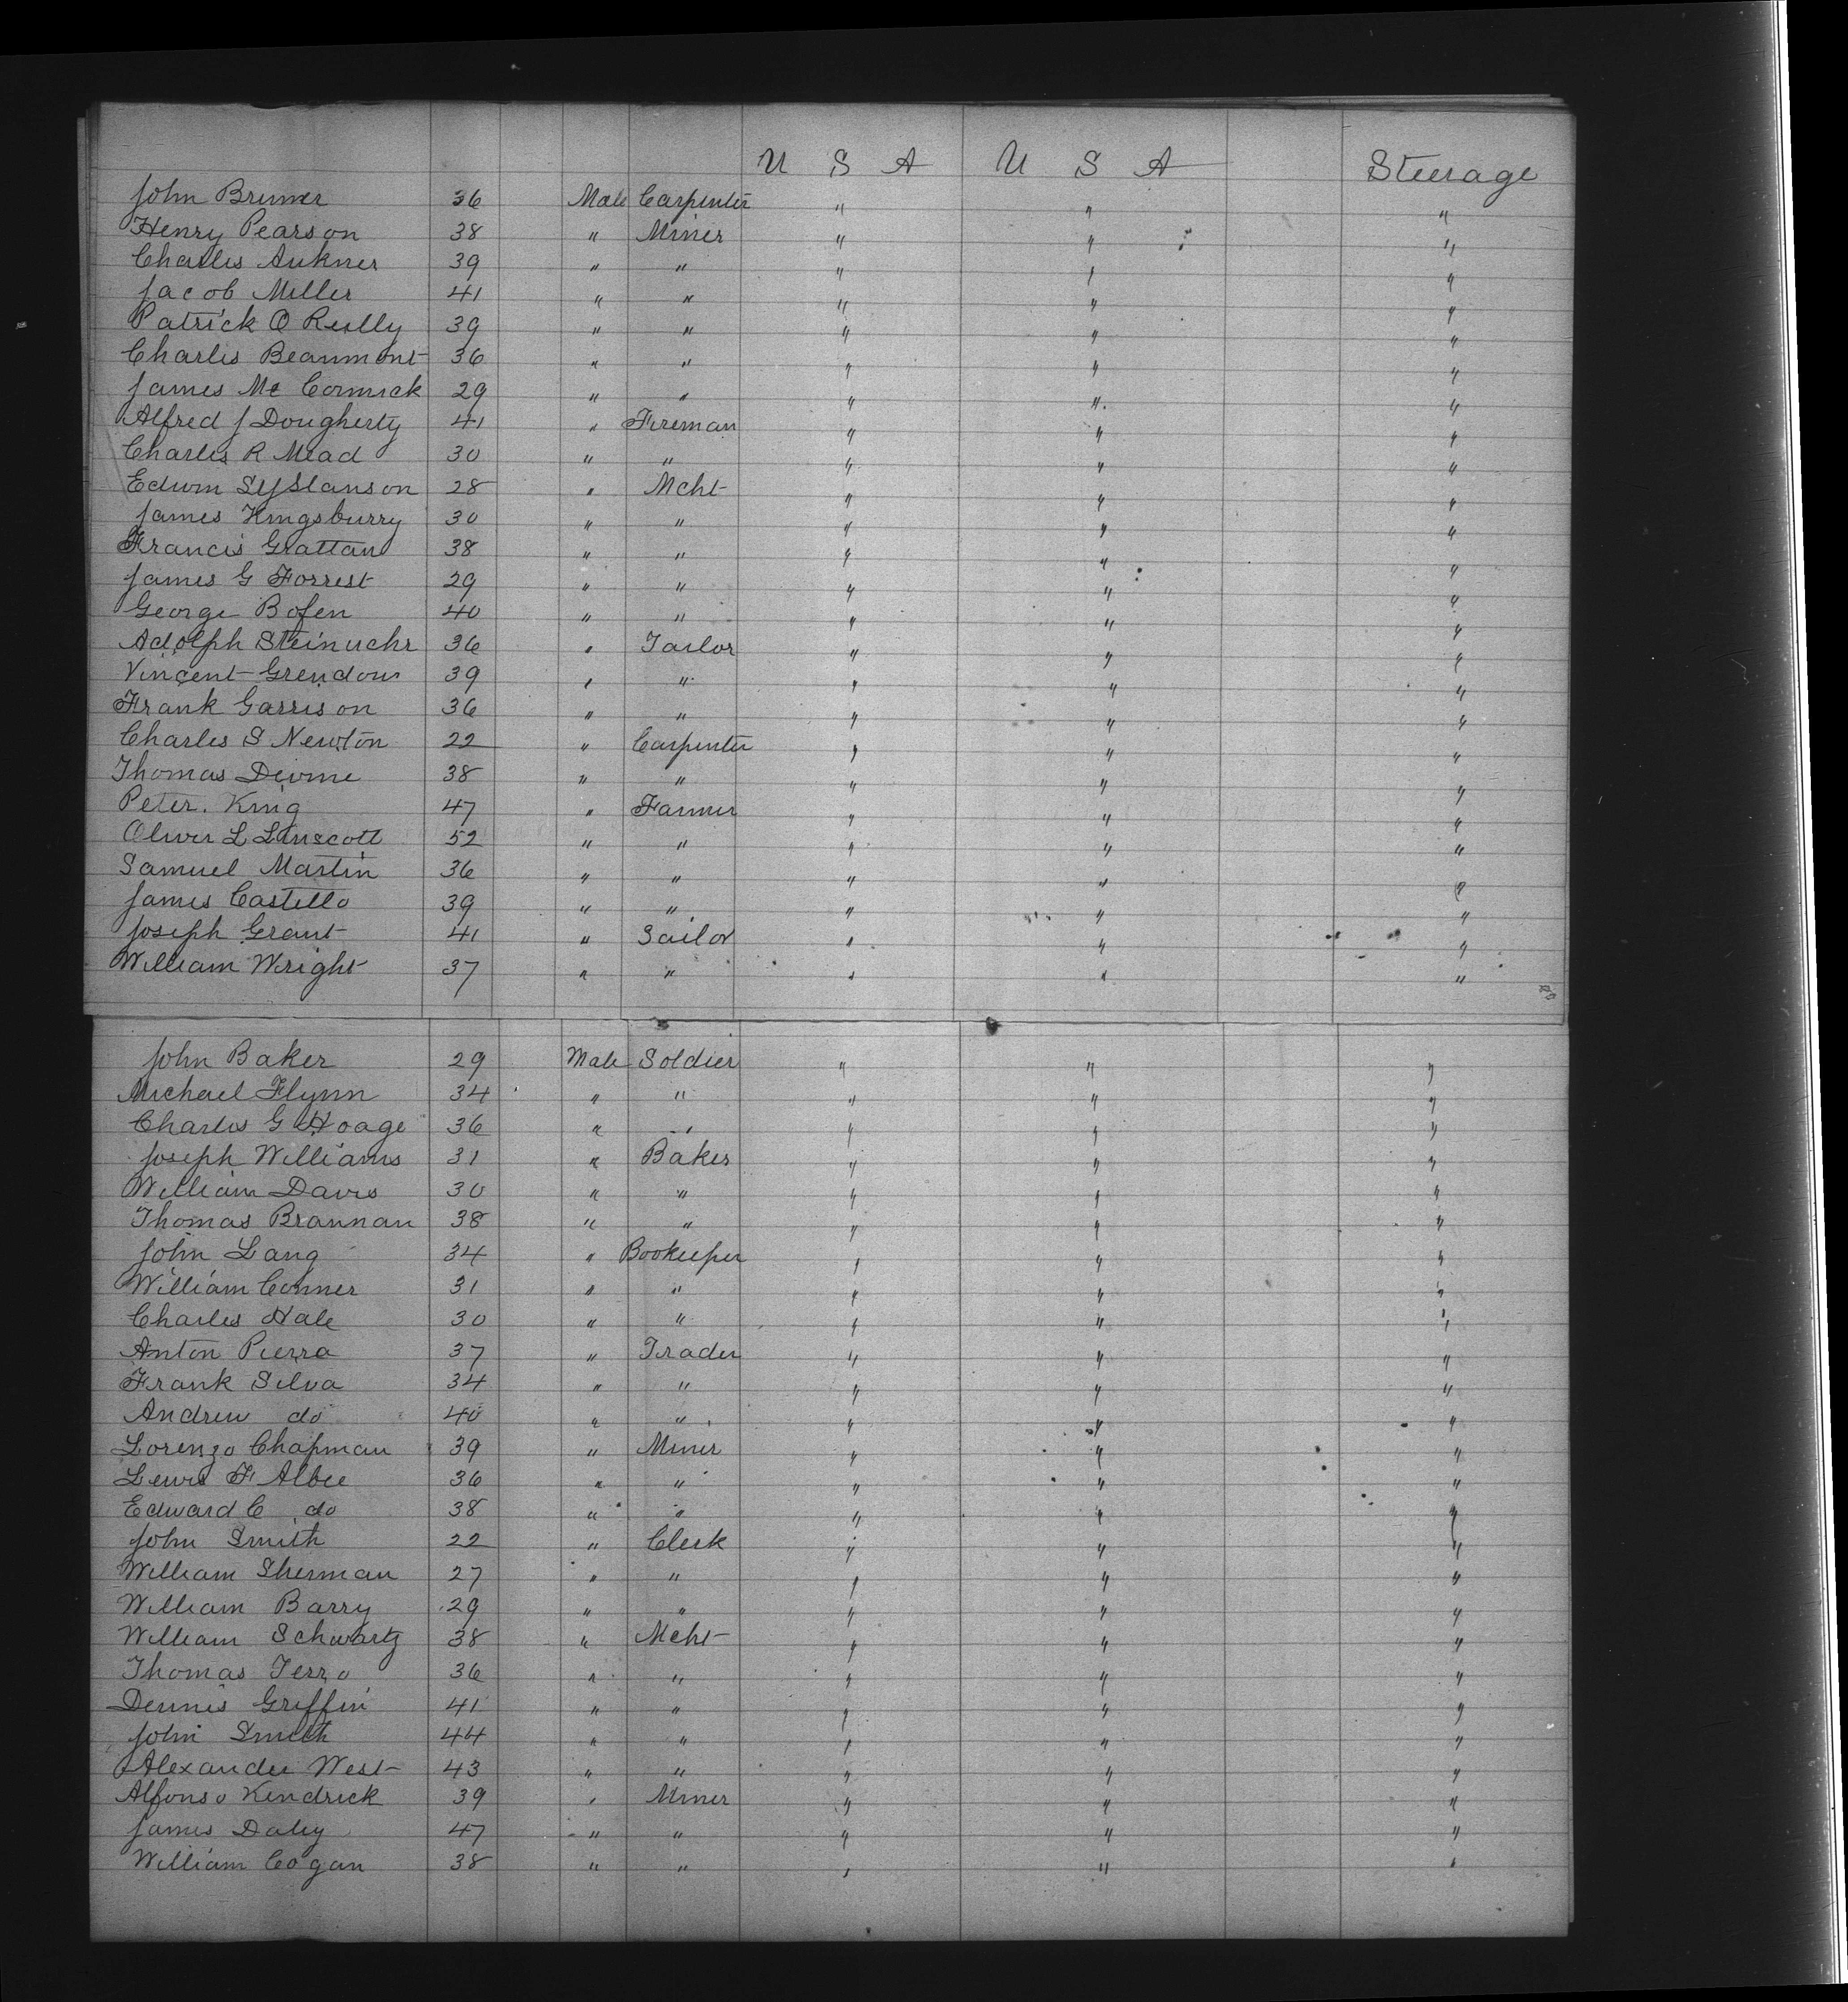 U S A U S A Steerage
John Brunner 36 Male Carpenter " " "
Henry Pearson 38 " Miner " " "
Charles Aukner 39 " " " " "
Jacob Miller 41 " " " " "
Patrick O Reilly 39 " " " " "
Charles Beaumont 36 " " " " "
James Mc Cormick 29 " " " " "
Alfred J Dougherty 41 " Fireman " " "
Charles R Mead 30 " " " " "
Edwin 28 " Mcht " " "
James Kingsburry 30 " " " " "
Francis Grattan 38 " " " " "
James G Forrest 29 " " " " "
George Bofen 40 " " " " "
Adolph 36 " Tailor " " "
Vincent Grendon 39 " " " " "
Frank Garrison 36 " " " " "
Charles S Newton 22 " Carpenter " " "
Thomas Devine 38 " " " " "
Peter. King 47 " Farmer " " "
Oliver L Linscott 52 " " " " "
Samuel Martin 36 " " " " "
James Castello 39 " " " " "
Joseph Grant 41 " Sailor " " "
William Wright 37 " " " " "
John Baker 29 Male Soldier " " "
Michael Flynn 34 " " " " "
Charles G Hoage 36 " " " " "
Joseph Williams 31 " Baker " " "
William Davis 30 " " " " "
Thomas Brannan 38 " " " " "
John Lang 34 " Bookeeper " " "
William Conner 31 " " " " "
Charles Hale 30 " " " " "
Anton Pierra 37 " Trader " " "
Frank Silva 34 " " " " "
Andrew do 40 " " " " "
Lorenzo Chapman 39 " Miner " " "
Lewis F Albee 36 " " " " "
Edward C do 38 " " " " "
John Smith 22 " Clerk " " "
William Sherman 27 " " " " "
William Barry 29 " " " " "
William Schwartz 38 " Mcht " " "
Thomas Terro 36 " " " " "
Dennis Griffin 41 " " " " "
John Smith 44 " " " " "
Alexander West 43 " " " " "
Alfonso Kendrick 39 " Miner " " "
James Daley 47 " " " " "
William Cogan 38 " " " " "